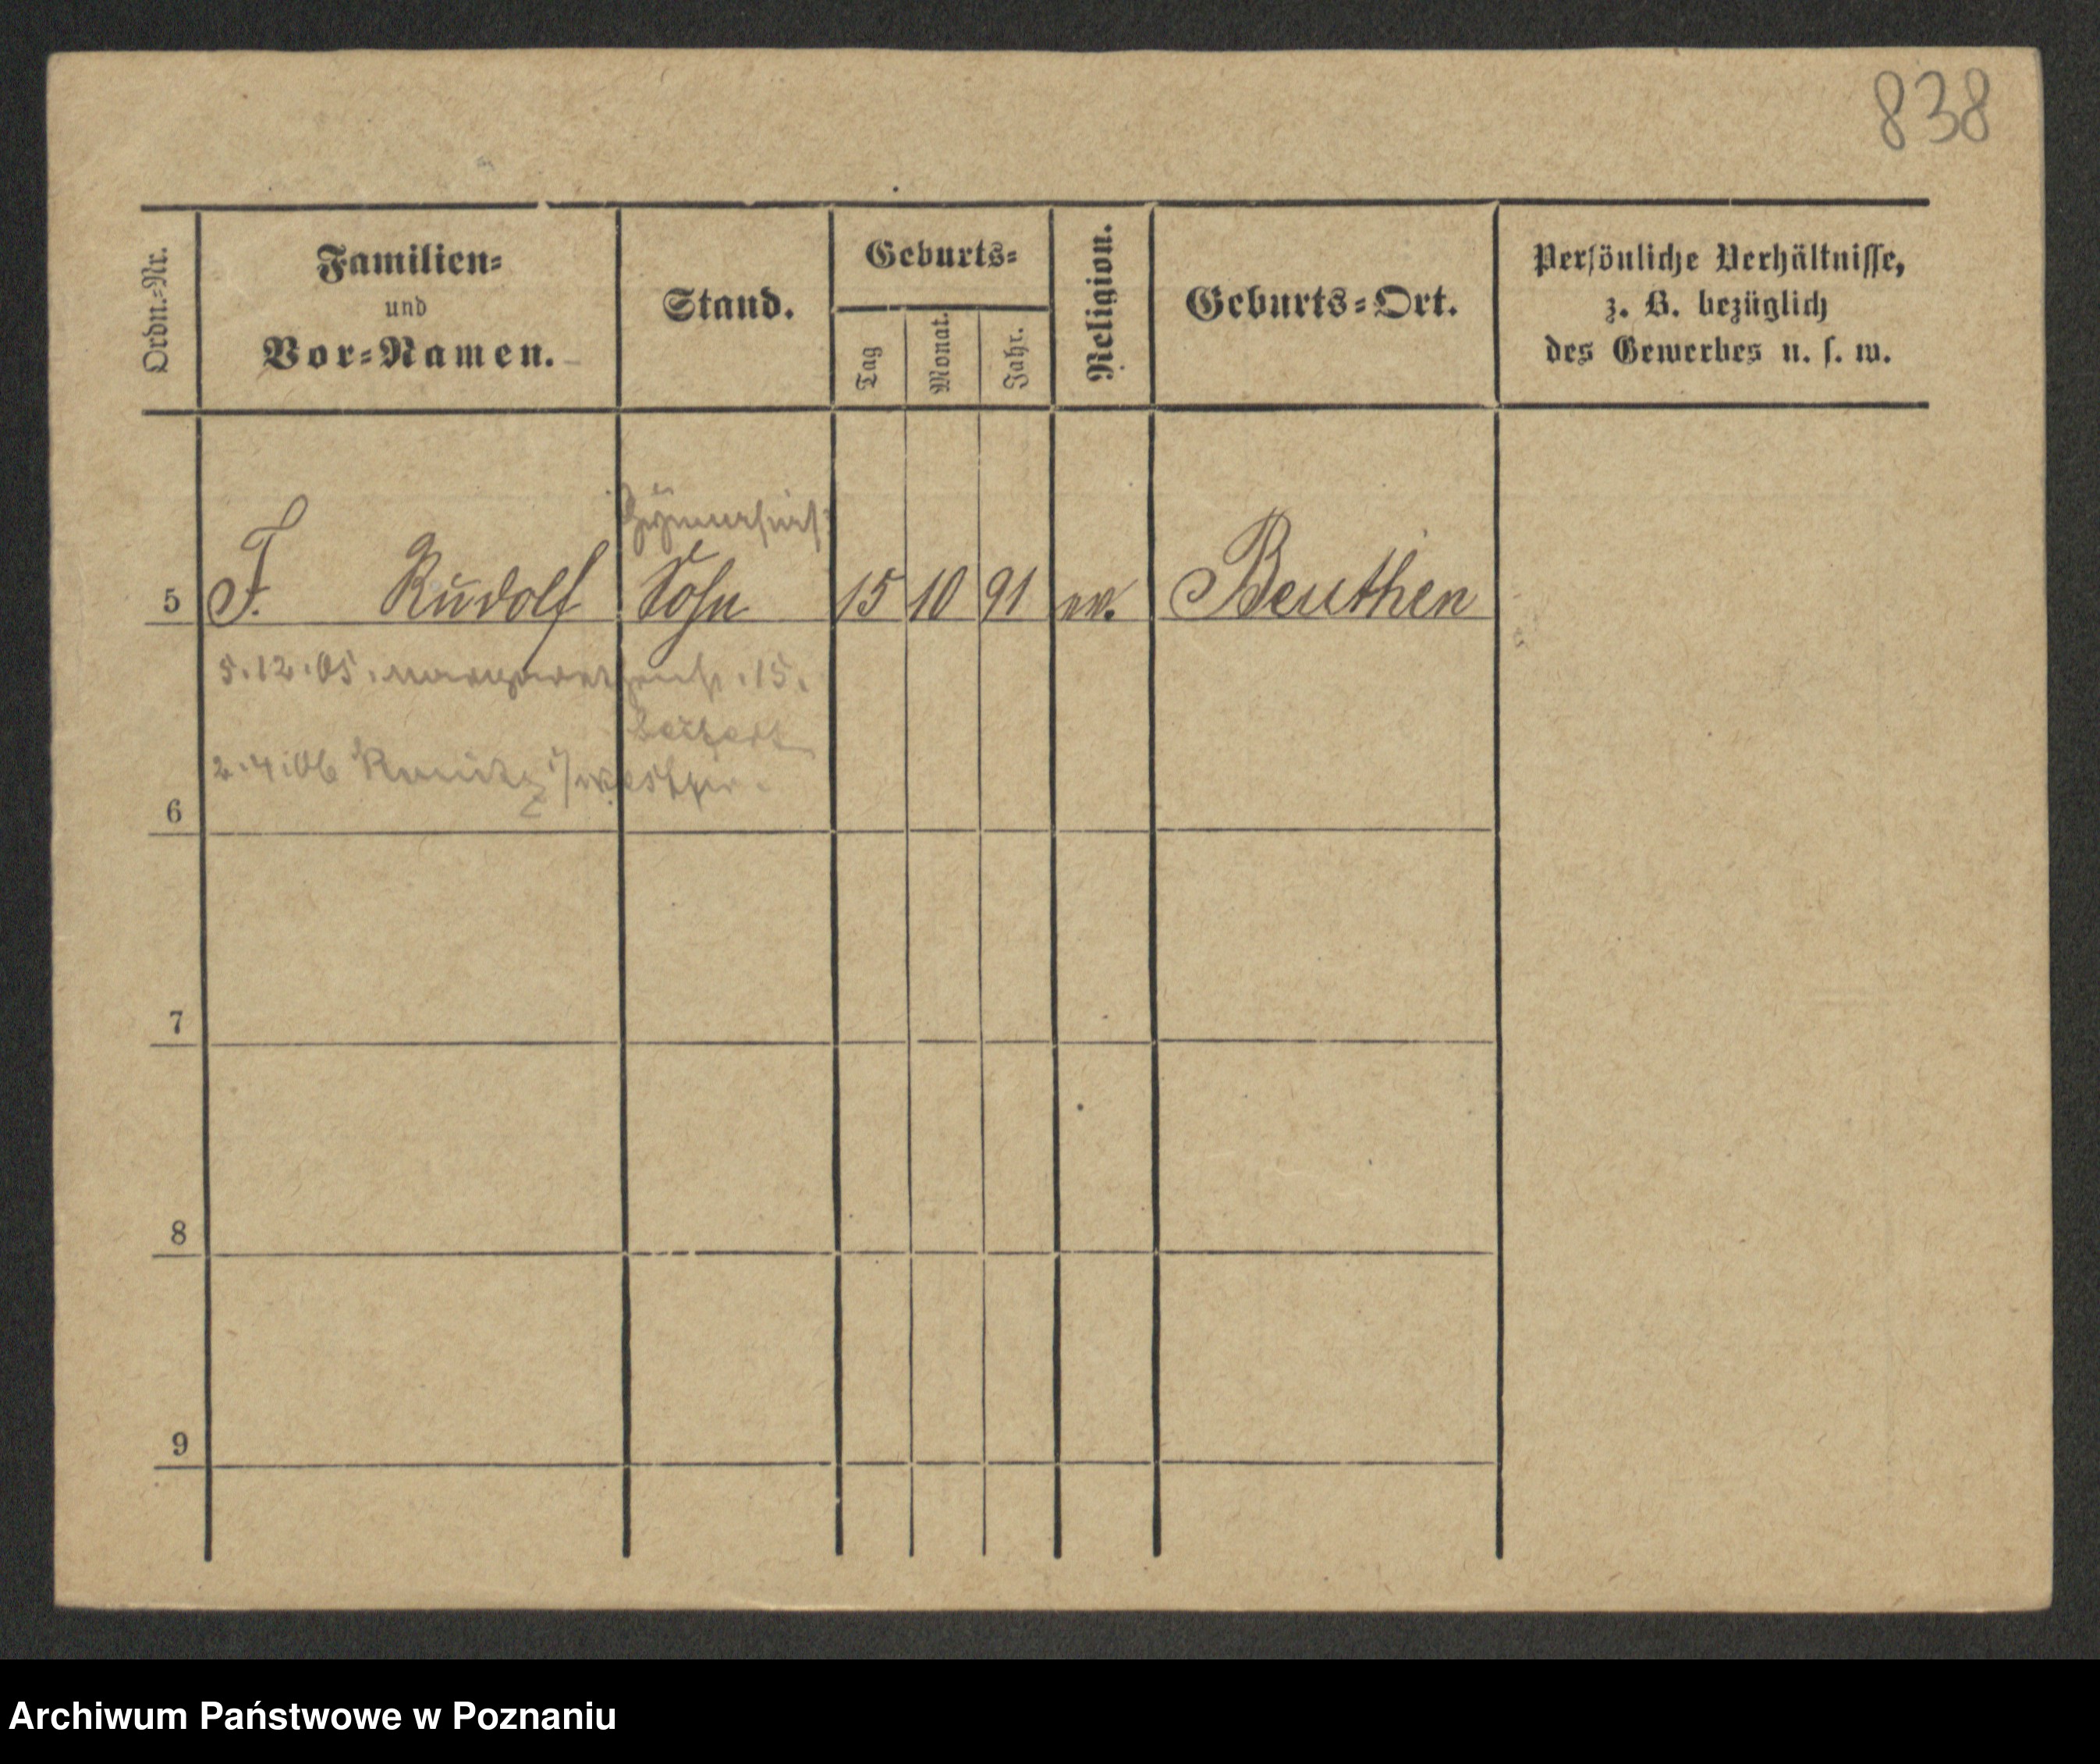 838
Ordn.=Nr.
Familien=
und
Vor=Namen.
Stand.
Geburts=
Tag
Monat.
Jahr.
Religion.
Geburts=Ort.
Persönliche Verhältnisse,
z. B. bezüglich
des Gewerbes u. s. w.
5 F. Rudolf Sohn 15 10 91 ev. Beuthen
5.12.05. 15.
2.4.06 Konitz i/Westpr.
6
7
8
9
Archiwum Państwowe w Poznaniu